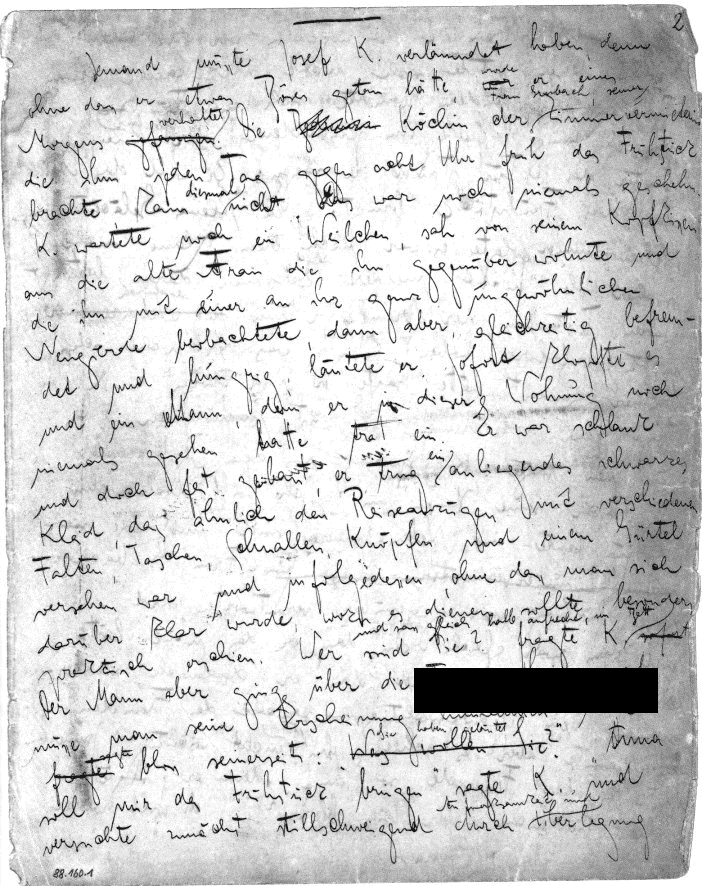 2
Jemand musste Josef K. verläumdet haben, denn
ohne dass er etwas Böses getan hätte, wurde er eines
Frau Grubach, seiner
verhaftet
Morgens gefangen. Die Köchin der Zimmervermieterin
die ihm jeden Tag gegen acht Uhr früh das Frühstück
diesmal
brachte, kam nicht. Das war noch niemals geschehn.
K. wartete noch ein Weilchen, sah von seinem Kopfkissen
aus die alte Frau die ihm gegenüber wohnte und
die ihn mit einer an ihr ganz ungewöhnlichen
Neugierde beobachtete, dann aber, gleichzeitig befrem-
det und hungrig, läutete er. Sofort klopfte es
und ein Mann, den er in dieser Wohnung noch
niemals gesehen hatte trat ein. Er war schlank
und doch fest gebaut, er trug ein anliegendes schwarzes
Kleid, das ähnlich den Reiseanzügen mit verschiedenen
Falten, Taschen, Schnallen, Knöpfen und einem Gürtel
versehen war und infolgedessen, ohne dass man sich
darüber klar wurde, wozu es dienen sollte, besonders
und sass gleich halb aufrecht im Bett
praktisch erschien. Wer sind Sie? fragte K.
Der Mann aber ging über die
müsse man seine Erscheinung
sagte Sie haben geläutet
fragte bloss seinerseits: "Was wollen Sie?" "Anna
soll mir das Frühstück bringen" sagte K. und
Aufmerksamkeit und
versuchte zunächst stillschweigend durch Überlegung
88.160.1